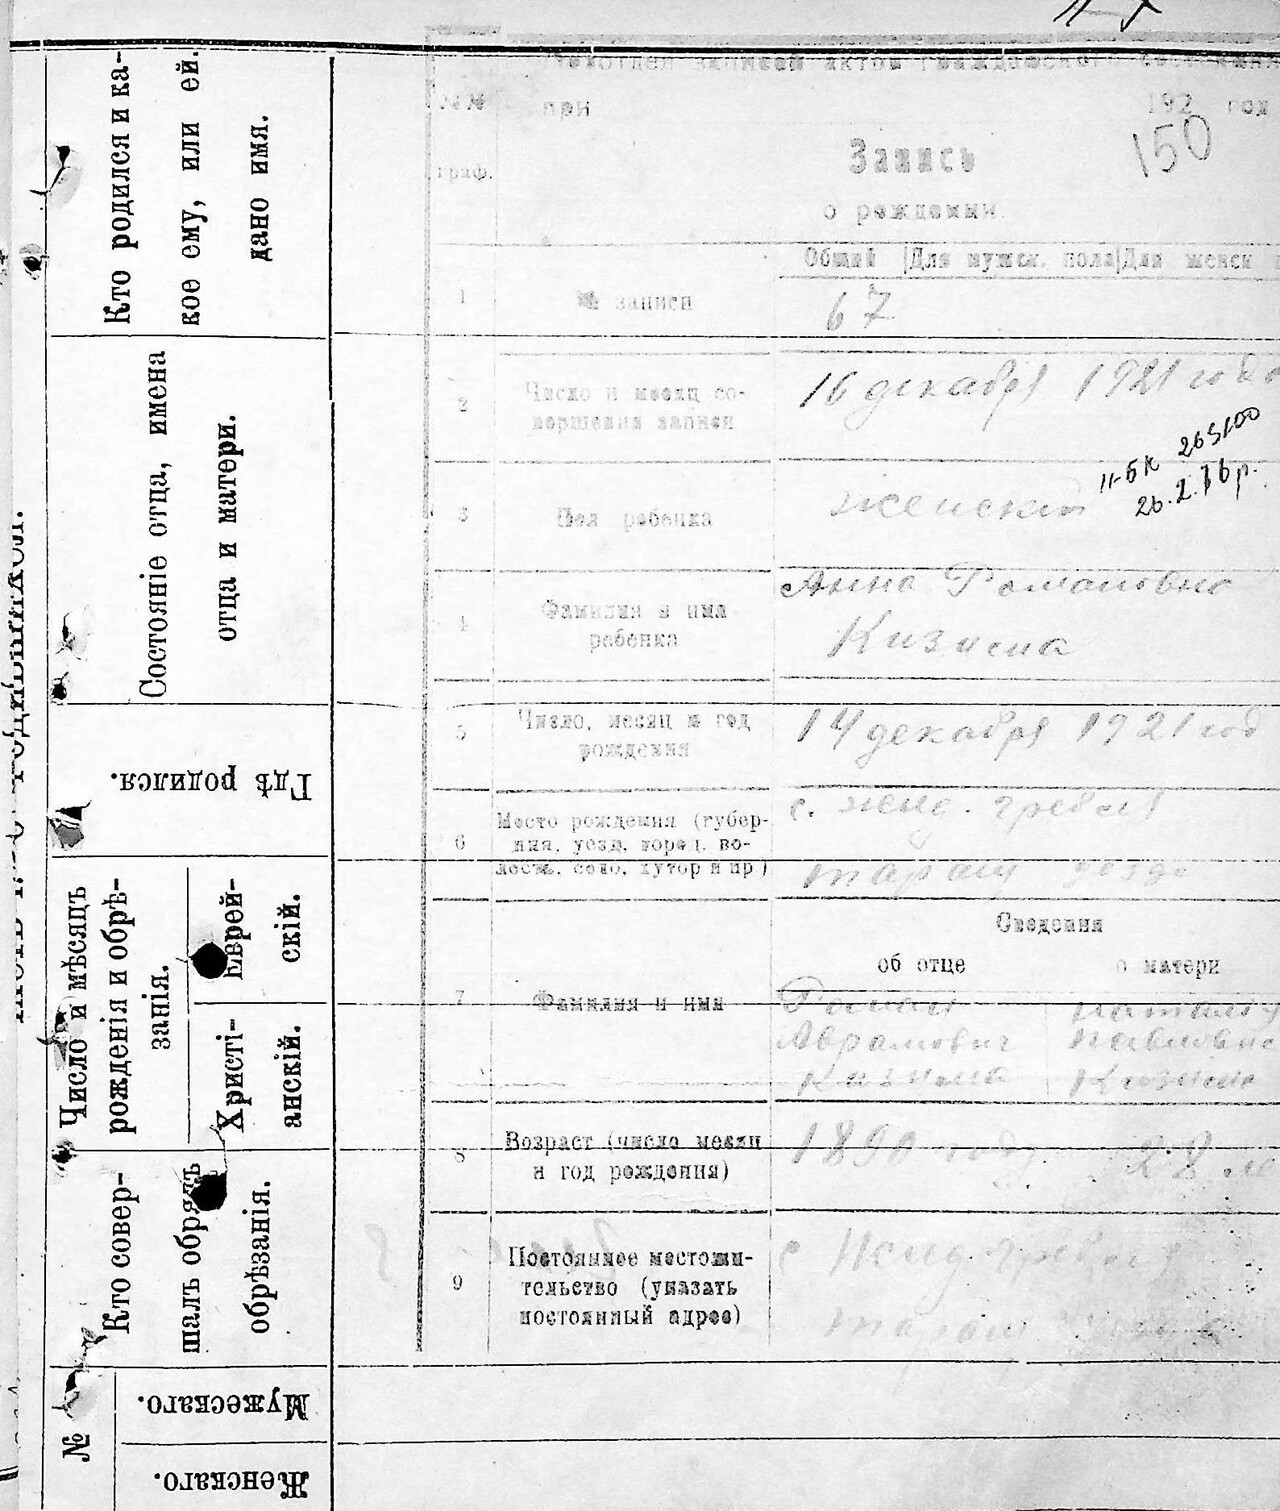 Кто родился и ка-
кое ему, или ей.
дано имя.
Состояніе отца, имена
отца и матери.
Гдѣ родился.
Число и мѣсяцъ
рожденія и обрѣ-
занія.
Еврей-
скій.
Христі-
анскій.
Кто совер-
шалъ обрядъ
обрѣзанія.
№
Мужескаго.
Женскаго.
записей актов гражданского состояния
при 192 год
150
граф.
Запись
о рождении.
Общий Для мужск. пола Для женск
1 № записи 67
2 Число и месяц со-
вершения записи
16 декабря 1921 года
11-БК 265100
26.2.76р.
3 Пол ребенка женский
4 Фамилия и имя
ребенка
Анна Романовна
Кизима
5 Число, месяц и год
рождения
14 декабря 1921 год
6 Место рождения (губер-
ния, уезд, город, во-
лость, село, хутор и пр)
с. жид. гребля
таращ уезда
Сведения
об отце о матери
7 Фамилия и имя
Роман Наталия
Аврамович Павловна
Кизима Кизима
8 Возраст (число месяц
и год рождения)
1890 году 28 ле
9 Постоянное местожи-
тельство (указать
постоянный адрес)
с гребля
таращ